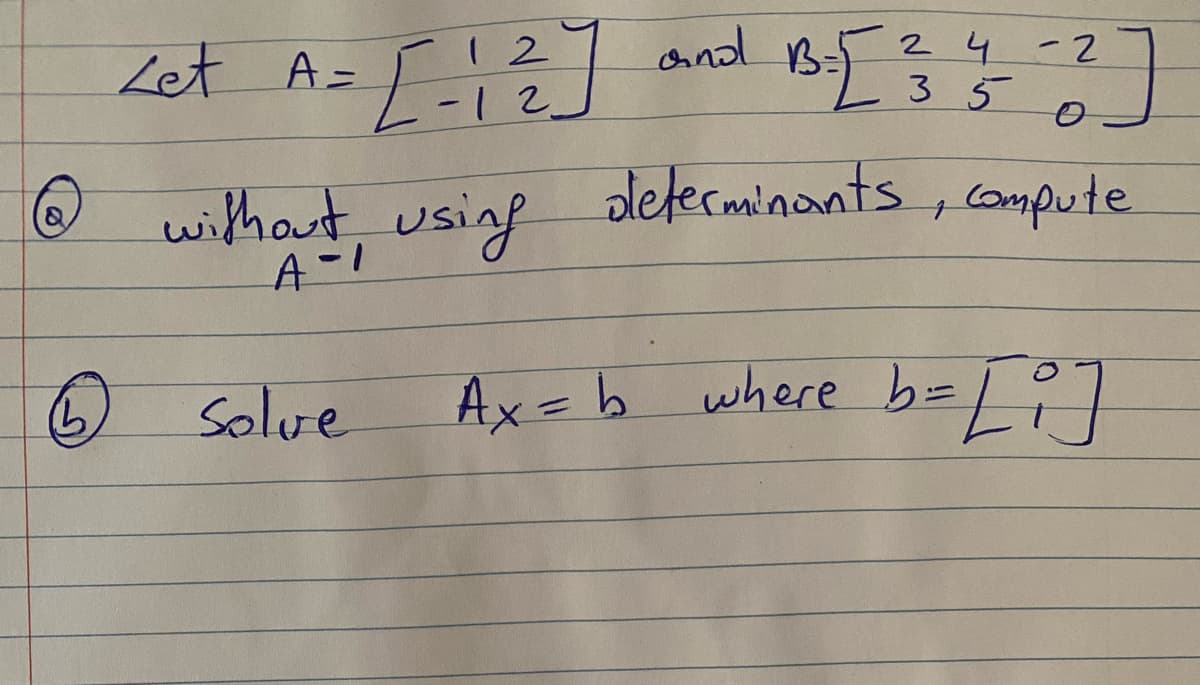 Let A = [ 1 2 and B = [ 2 4 -2
-1 2 ] 3 5 0 ]
(a) without using determinants, compute
A^-1
(b) Solve Ax = b where b = [ 0
1 ]